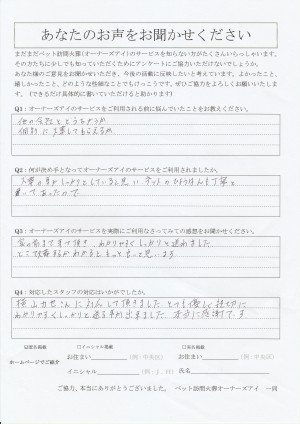 あなたのお声をお聞かせください
まだまだペット訪問火葬(オーナーズアイ)のサービスを知らない方がたくさんいらっしゃいます。
その方たちに少しでも知っていただくためにアンケートにご協力いただけないでしょうか。
あなた様のご意見をお聞かせいただき、今後の活動に反映したいと考えています。よかったこと、
嬉しかったこと、どのような些細なことでもけっこうです。ぜひご協力をよろしくお願いいたしま
す。(できるだけ具体的に書いていただけると助かります)
Q1:オーナーズアイのサービスをご利用される前に悩んでいたことをお教えください。
他の会社とどうちがうか
個別に火葬してもらえるか
Q2:何が決め手となってオーナーズアイのサービスをご利用されましたか。
書いてあったので
Q3:オーナーズアイのサービスを実際にご利用なさってみての感想をお聞かせください。
わかりやすくしっかりと送れました
Q4:対応したスタッフの対応はいかがでしたか。
横山力也さんに対応して頂きました とても優しく親切に
わかりやすくしっかりと送る事が出来ました 本当に感謝です
☑匿名掲載 □イニシャル掲載 □実名掲載
ホームページでご紹介
お住まい (例:中央区) お住まい (例:中央区)
イニシャル (例:I.H) 氏名
ご協力、本当にありがとうございました。 ペット訪問火葬オーナーズアイ 一同